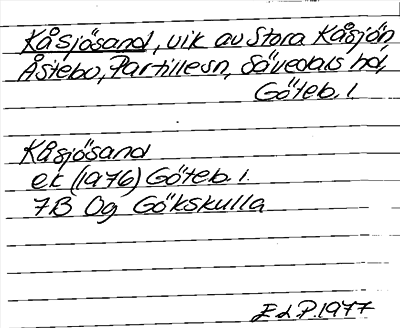 Kåsjösand, vik av Stora Kåsjön,
Åstebo, Partillesn, Sävedals hd,
Göteb. l.
Kåsjösand
ek (1976) Göteb. l.
7B 0g Gökskulla
E d P. 1977